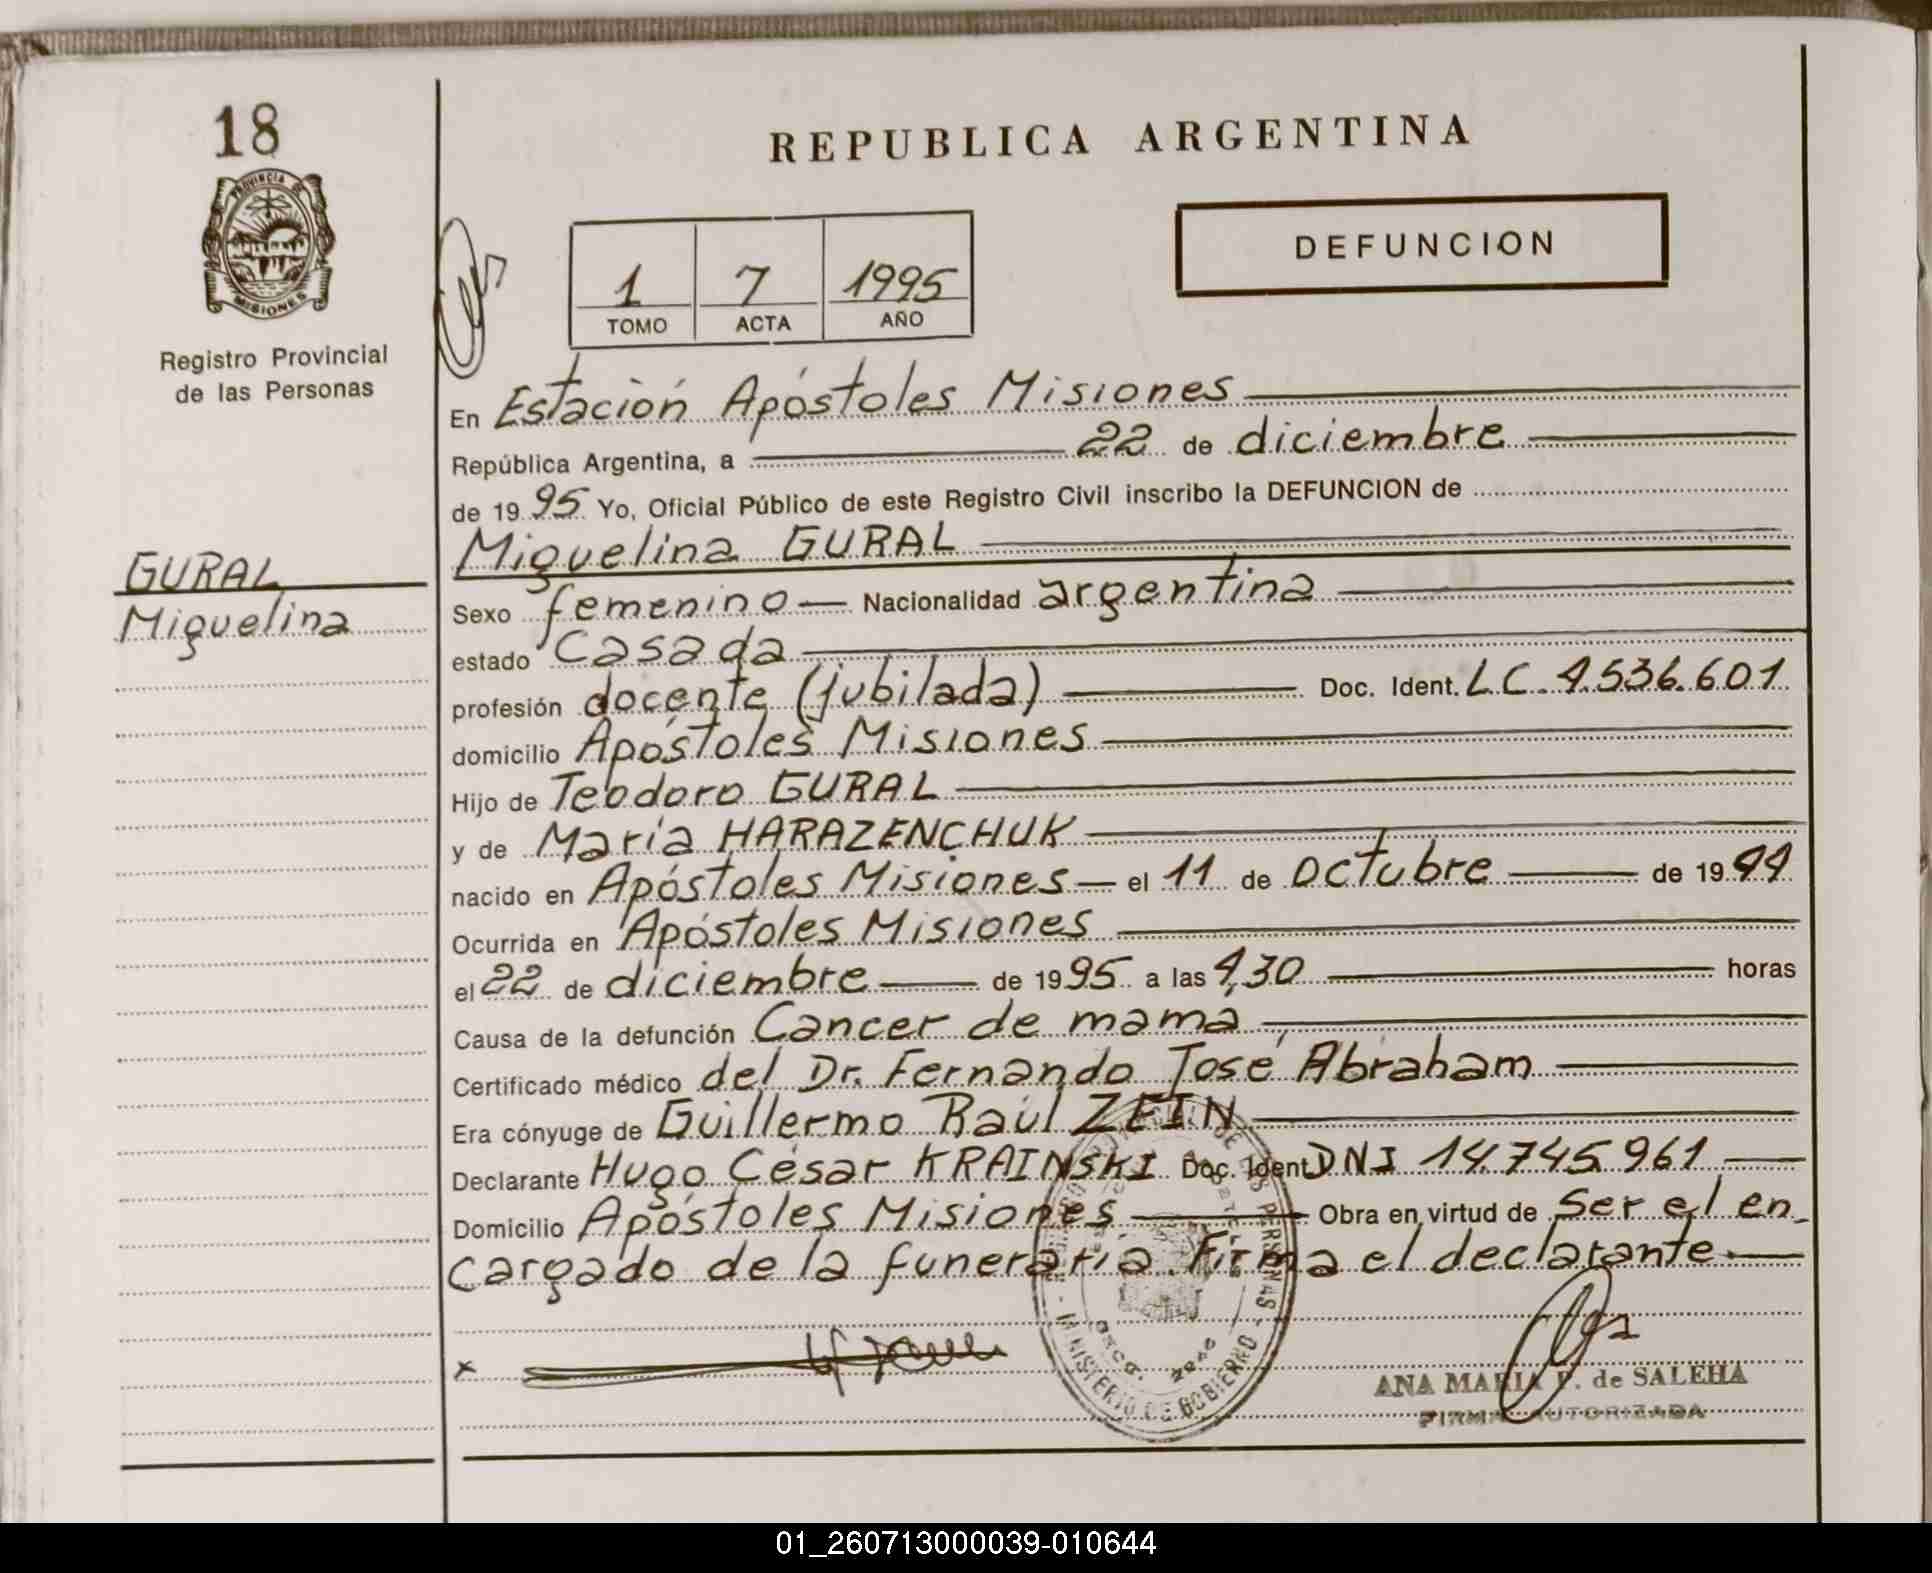 18
PROVINCIA DE
MISIONES
Registro Provincial
de las Personas
GURAL
Miguelina
REPUBLICA ARGENTINA
DEFUNCION
1 7 1995
TOMO ACTA AÑO
En Estación Apóstoles Misiones
República Argentina, a 22 de diciembre
de 1995 Yo, Oficial Público de este Registro Civil inscribo la DEFUNCION de
Miguelina GURAL
Sexo femenino Nacionalidad argentina
estado Casada
profesión docente (jubilada) Doc. Ident. LC. 4.536.601
domicilio Apóstoles Misiones
Hijo de Teodoro GURAL
y de María HARAZENCHUK
nacido en Apóstoles Misiones el 11 de octubre de 1944
Ocurrida en Apóstoles Misiones
el 22 de diciembre de 1995 a las 4,30 horas
Causa de la defunción Cancer de mama
Certificado médico del Dr. Fernando José Abraham
Era cónyuge de Guillermo Raúl ZEIN
Declarante Hugo César KRAINSKI Doc. Ident DNI 14.745.961
Domicilio Apóstoles Misiones Obra en virtud de ser el en-
cargado de la funeraria. Firma el declarante
x
MINISTERIO DE GOBIERNO
ANA MARIA P. de SALEHA
FIRMA AUTORIZADA
01_260713000039-010644